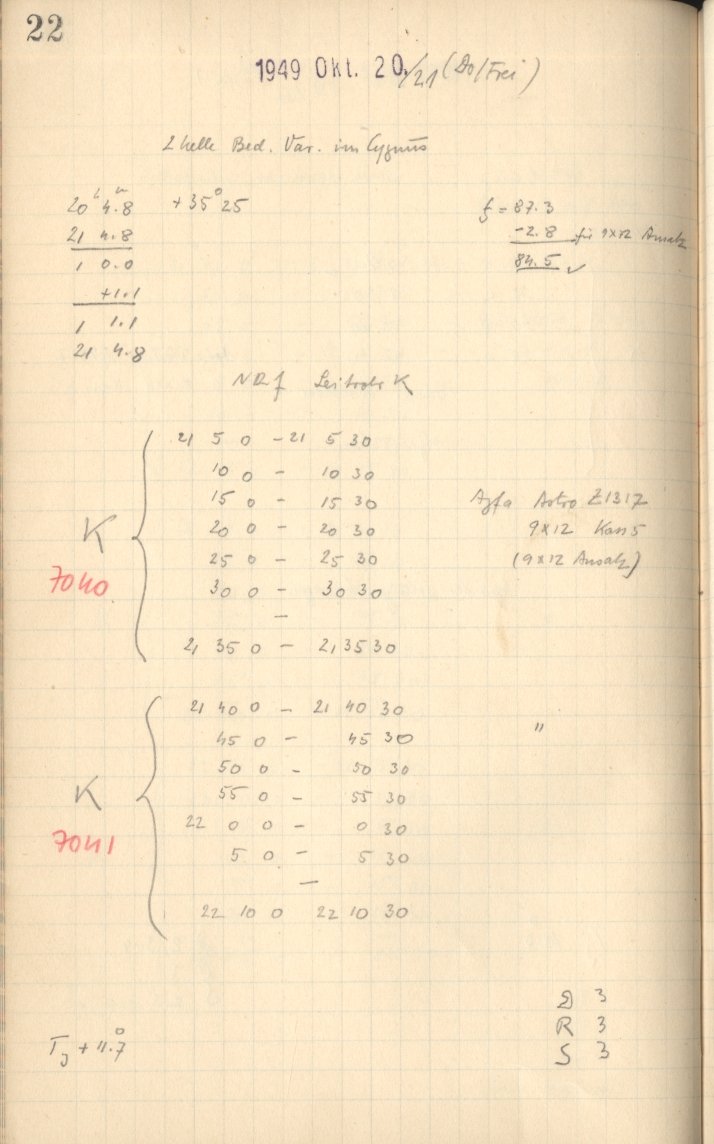 22
1949 Okt. 20./21 (Do/Frei)
2 helle Bed. Var. im Cygnus
20ʰ 4.8ᵐ +35°25
21 4.8
1 0.0
+1.1
1 1.1
21 4.8
f = 87.3
-2.8 für 9x12 Ansatz
84.5 ✓
Leitrohr K
K 7040
21 5 0 - 21 5 30
10 0 - 10 30
15 0 - 15 30
20 0 - 20 30
25 0 - 25 30
30 0 - 30 30
-
21 35 0 - 21 35 30
Agfa Astro Z1317
9x12 Kass 5
(9x12 Ansatz)
K 7041
21 40 0 - 21 40 30 "
45 0 - 45 30
50 0 - 50 30
55 0 - 55 30
22 0 0 - 0 30
5 0 - 5 30
-
22 10 0 22 10 30
D 3
R 3
S 3
TJ +11.7°